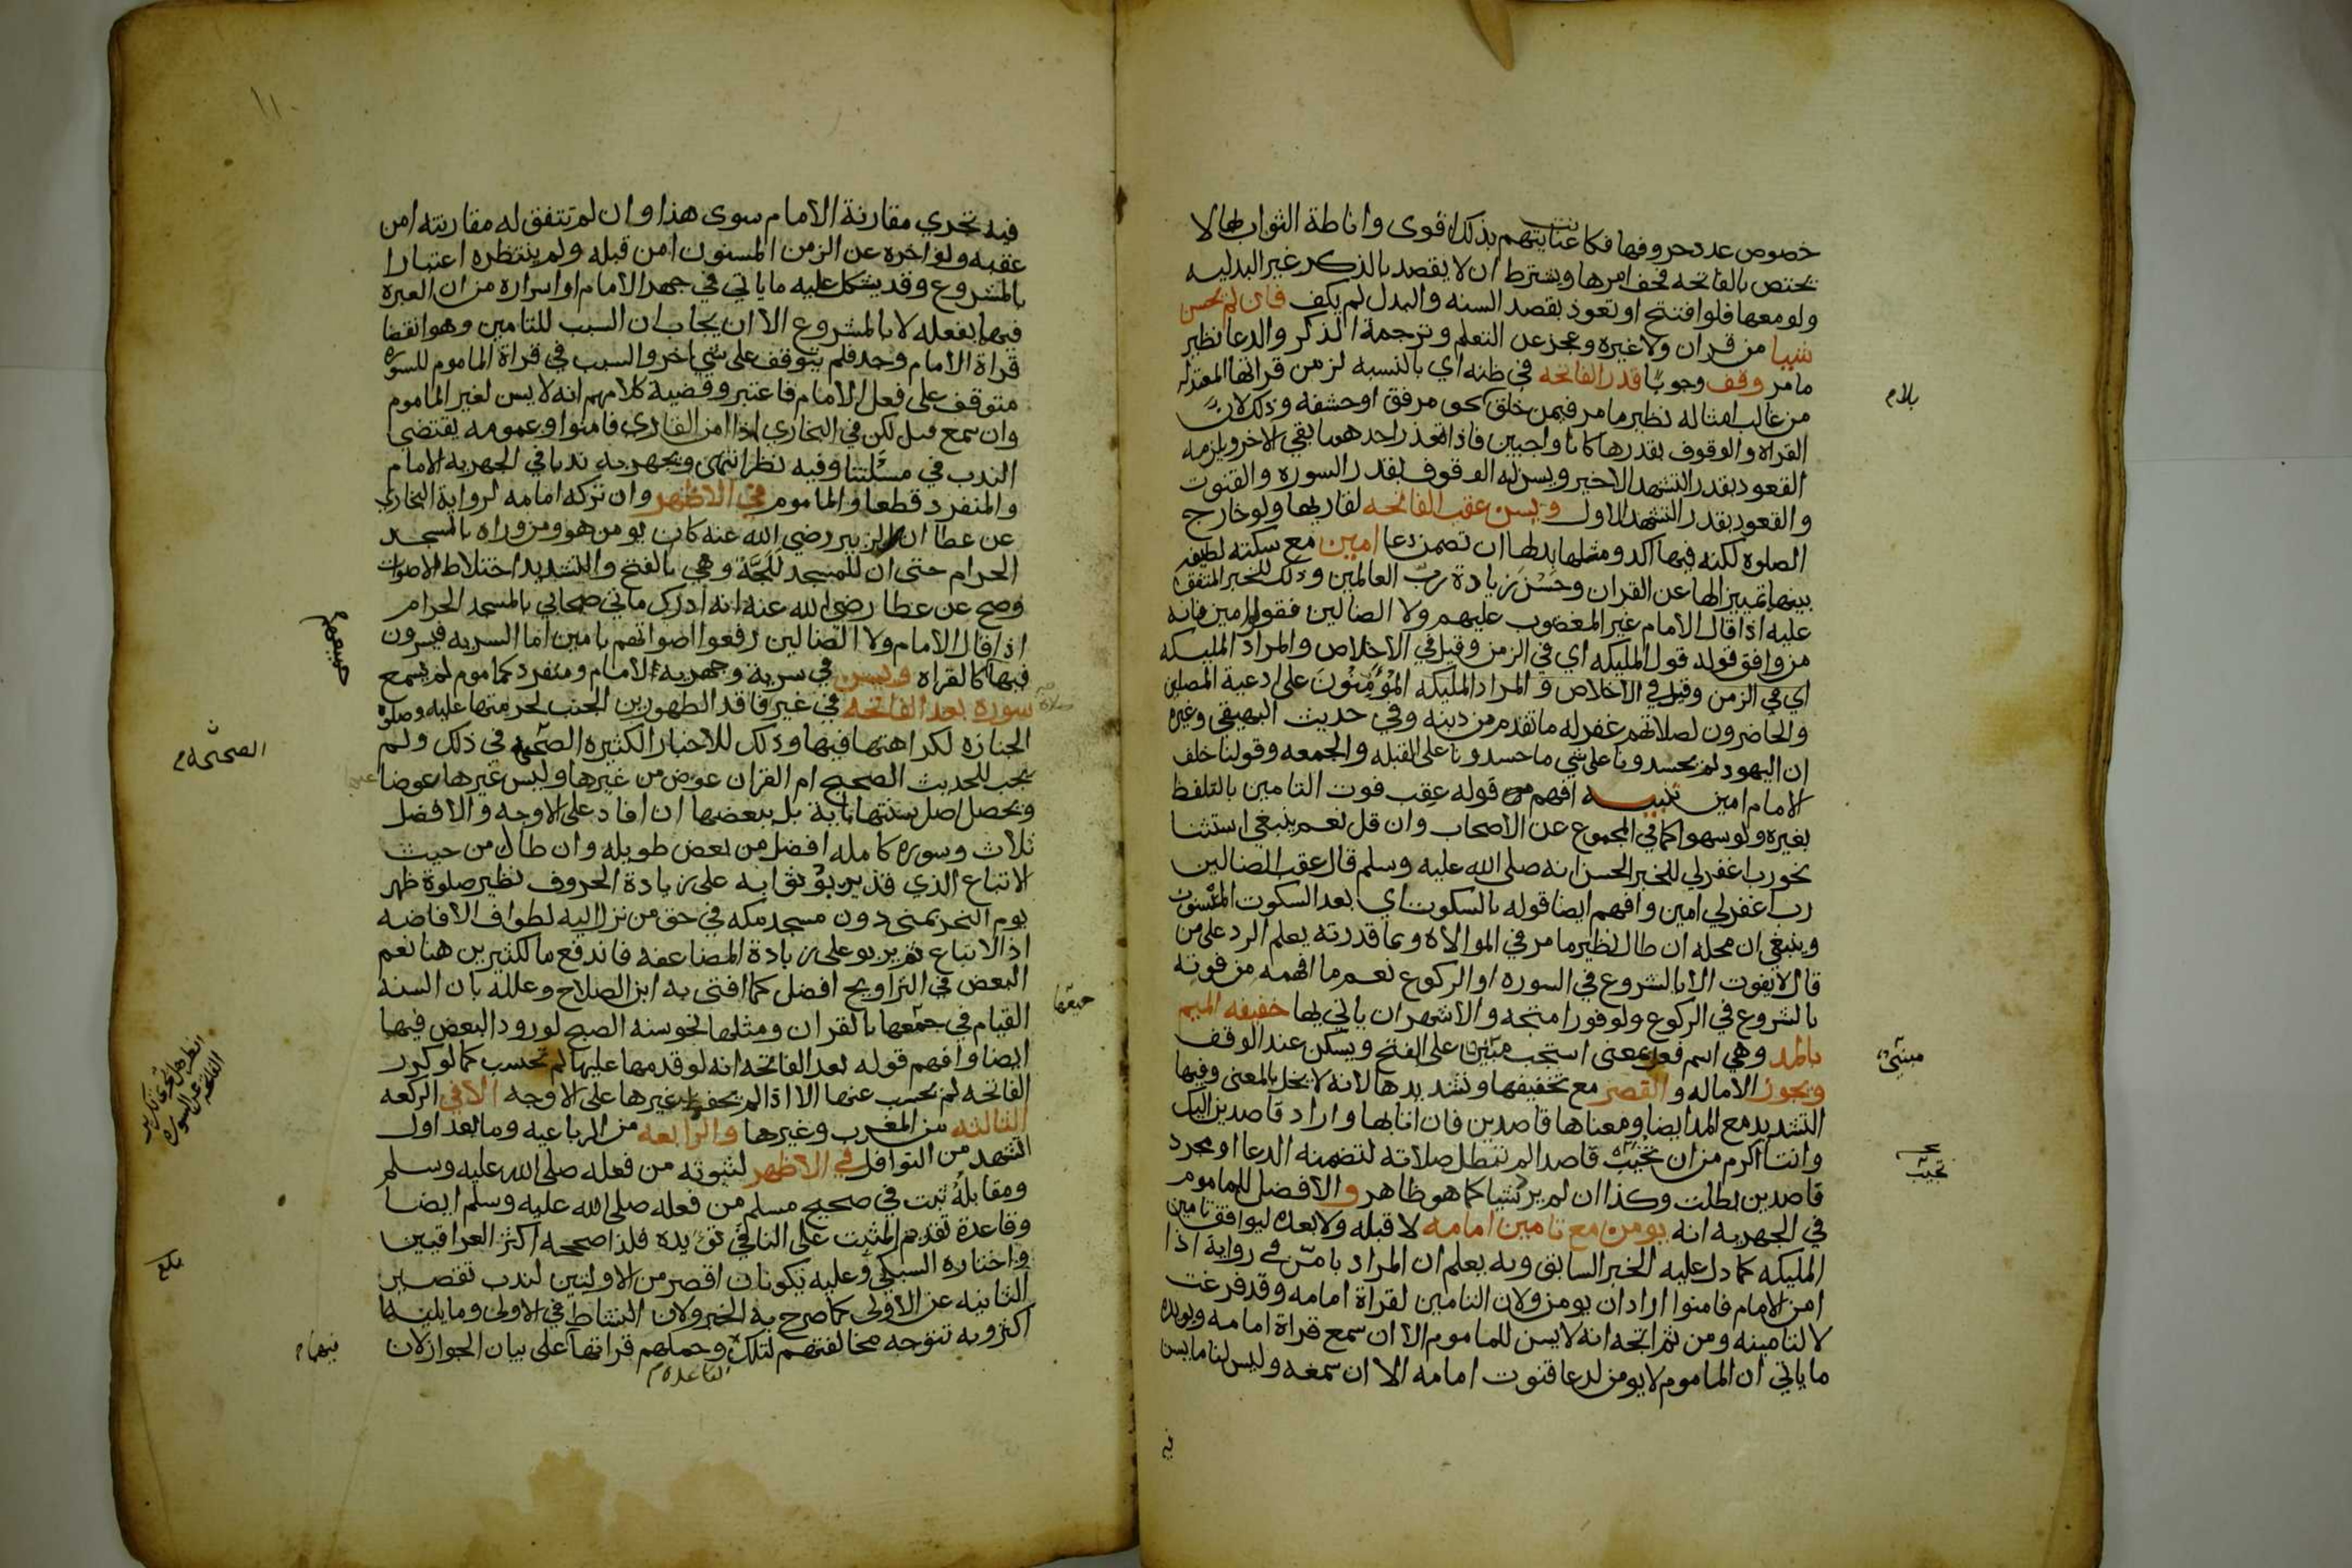 خصوص عدد حروفها فكا عنايتهم بذلك اقوى واناطة الثواب بها لا
يختص بالفاتحه فخف امرها ويشترط ان لا يقصد بالذكر غير البدليه
ولو معها فلو افتتح او تعوذ بقصد السنه والبدل لم يكف فان لم يحسن
شيا من قران ولا غيره وعجز عن التعلم وترجمة الذكر والدعا نظير
ما مر وقف وجوبا قدر الفاتحه في ظنه اي بالنسبه لزمن قراتها المعتدله
من غالب امثاله نظير ما مر فيمن خلق بحو مرفق او حشفه وذلك لان
القراه والوقوف بقدرها كانا واجبين فاذا تعذر احدهما بقي الاخر ويلزمه
القعود بقدر التشهد الاخير ويسن له الوقوف بقدر السوره والقنوت
والقعود بقدر التشهد الاول ويسن عقب الفاتحه لقاريها ولو خارج
الصلوه لكنه فيها اكد ومثلها بدلها ان تضمن دعا امين مع سكته لطيفه
بينها تمييزا لها عن القران وحسن زيادة رب العالمين وذلك للخبر المتفق
عليه اذا قال الامام غير المغضوب عليهم ولا الضالين فقولوا امين فانه
من وافق قوله قول المليكه اي في الزمن وقيل في الاخلاص والمراد المليكه
اي في الزمن وقيل في الاخلاص والمراد المليكه المؤمنون على ادعية المصلين
والحاضرون لصلاتهم غفر له ما تقدم من دينه وفي حديث البيهقي وغيره
ان اليهود لم يحسدونا على شي ما حسدونا على القبله والجمعه وقولنا خلف
الامام امين تنبيه افهم من قوله عقب فوت التامين بالتلفظ
بغيره ولو سهوا كما في المجموع عن الاصحاب وان قل نعم ينبغي استثنا
نحو رب اغفر لي للخبر الحسن انه صلى الله عليه وسلم قال عقب الضالين
رب اغفر لي امين وافهم ايضا قوله بالسكوت اي بعد السكوت المسنون
وينبغي ان محله ان طال نظير ما مر في الموالاه وبما قدرته يعلم الرد على من
قال لا يفوت الا بالشروع في السوره او الركوع نعم ما افهمه من فوته
بالشروع في الركوع ولو فورا متجه والاشهر ان ياتي بها خفيفه الميم
بالمد وهي اسم فعل بمعنى استجب مبني على الفتح ويسكن عند الوقف
ويجوز الاماله والقصر مع تخفيفها وتشديدها لانه لا يخل بالمعنى وفيها
التشديد مع المد ايضا ومعناها قاصدين فان اتا بها واراد قاصدين اليك
وانت اكرم من ان تخيب قاصدا لم تبطل صلاته لتضمنه الدعا او مجرد
قاصدين بطلت وكذا ان لم يرد شيا كما هو ظاهر والافضل للماموم
في الجهريه انه يومن مع تامين امامه لا قبله ولا بعده ليوافق تامين
المليكه كما دل عليه الخبر السابق وبه يعلم ان المراد با من في رواية اذا
امن الامام فامنوا اراد ان يومن ولان التامين لقراة امامه وقد فرغت
لا لتامينه ومن ثم اتجه انه لا يسن للماموم الا ان سمع قراة امامه ويويده
ما ياتي ان الماموم لا يومن لدعا قنوت امامه الا ان سمعه وليس لنا ما يسن
فيه
مبني
تخيب
١١٠
فيه تحري مقارنة الامام سوى هذا وان لم تتفق له مقارنته امن
عقبه ولو اخره عن الزمن المسنون امن قبله ولم ينتظره اعتبارا
بالمشروع وقد يشكل عليه ما ياتي في جهر الامام او اسراره من ان العبره
فيهما بفعله لا بالمشروع الا ان يجاب ان السبب للتامين وهو انقضا
قراة الامام وجد فلم يتوقف على شي اخر والسبب في قراة الماموم للسوره
متوقف على فعل الامام فاعتبر وقضية كلامهم انه لا يسن لغير الماموم
وان سمع قيل لكن في البخاري اذا امن القاري فامنوا وعمومه يقتضي
الندب في مسئلتنا وفيه نظر انتهى ويجهر به ندبا في الجهريه الامام
والمنفرد قطعا والماموم في الاظهر وان تركه امامه لرواية البخاري
عن عطا ان ابن الزبير رضي الله عنه كان يومن هو ومن وراه بالمسجد
الحرام حتى ان للمسجد للجة وهي بالفتح والتشديد اختلاط الاصوات
وصح عن عطا رضي الله عنه انه ادرك مايتي صحابي بالمسجد الحرام
اذا قال الامام ولا الضالين رفعوا اصواتهم بامين اما السريه فيسرون
فيها كالقراه ويسن في سرية وجهرية الامام ومنفرد كماموم لم يسمع
سوره بعد الفاتحه في غير فاقد الطهورين الجنب لحرمتها عليه وصلوة
الجنازه لكراهتها فيها وذلك للاخبار الكثيره الصحيه في ذلك ولم
تجب للحديث الصحيح ام القران عوض من غيرها وليس غيرها عوضا
ويحصل اصل سنتها باية بل ببعضها ان افاد على الاوجه والافضل
ثلاث وسوره كامله افضل من بعض طويله وان طال من حيث
الاتباع الذي قد يربو ثوابه على زيادة الحروف نظير صلوة ظهر
يوم النحر بمنى دون مسجد مكه في حق من نزل اليه لطواف الافاضه
اذ الاتباع ثم يربو على زيادة المضاعفه فاندفع ما لكثيرين هنا نعم
البعض في التراويح افضل كما افتى به ابن الصلاح وعلله بان السنه
القيام في جميعها بالقران ومثلها نحو سنه الصبح لورود البعض فيها
ايضا وافهم قوله بعد الفاتحه انه لو قدمها عليها لم تحسب كما لو كرر
الفاتحه لم تحسب عنها الا اذا لم يحفظ غيرها على الاوجه الا في الركعه
الثالثه من المغرب وغيرها والرابعه من الرباعيه وما بعد اول
التشهد من النوافل في الاظهر لثبوته من فعله صلى الله عليه وسلم
ومقابله ثبت في صحيح مسلم من فعله صلى الله عليه وسلم ايضا
وقاعدة تقديم المثبت على النافي تويده فلذا صححه اكثر العراقيين
واختاره السبكي وعليه يكونان اقصر من الاوليين لندب تقصير
الثانيه عن الاولى كما صرح به الخبر ولان النشاط في الاولى وما يليها
اكثر وبه تتوجه مخالفتهم لتلك وحملهم قراتها على بيان الجواز لان
القاعده
جميعهم
الصحيحه
جميعها
فيهما